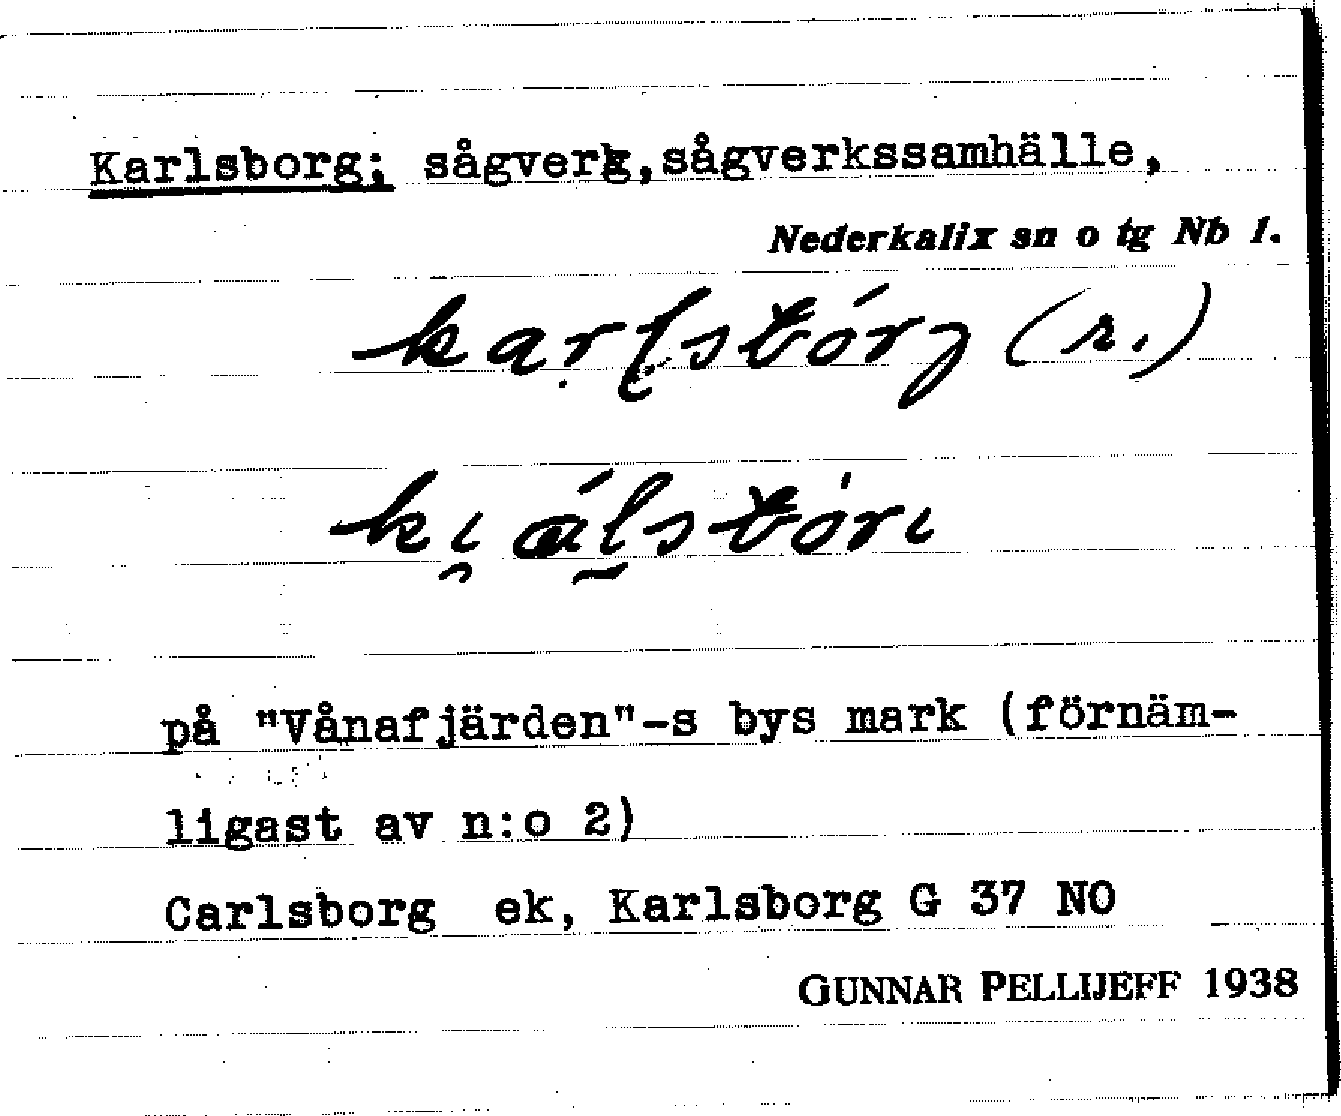 Karlsborg; sågverk,sågverkssamhälle,
Nederkalix sn o tg Nb 1.
(r.)
på "Vånafjärden"-s bys mark (förnäm-
ligast av n:o 2)
Carlsborg ek, Karlsborg G 37 NO
GUNNAR PELLIJEFF 1938